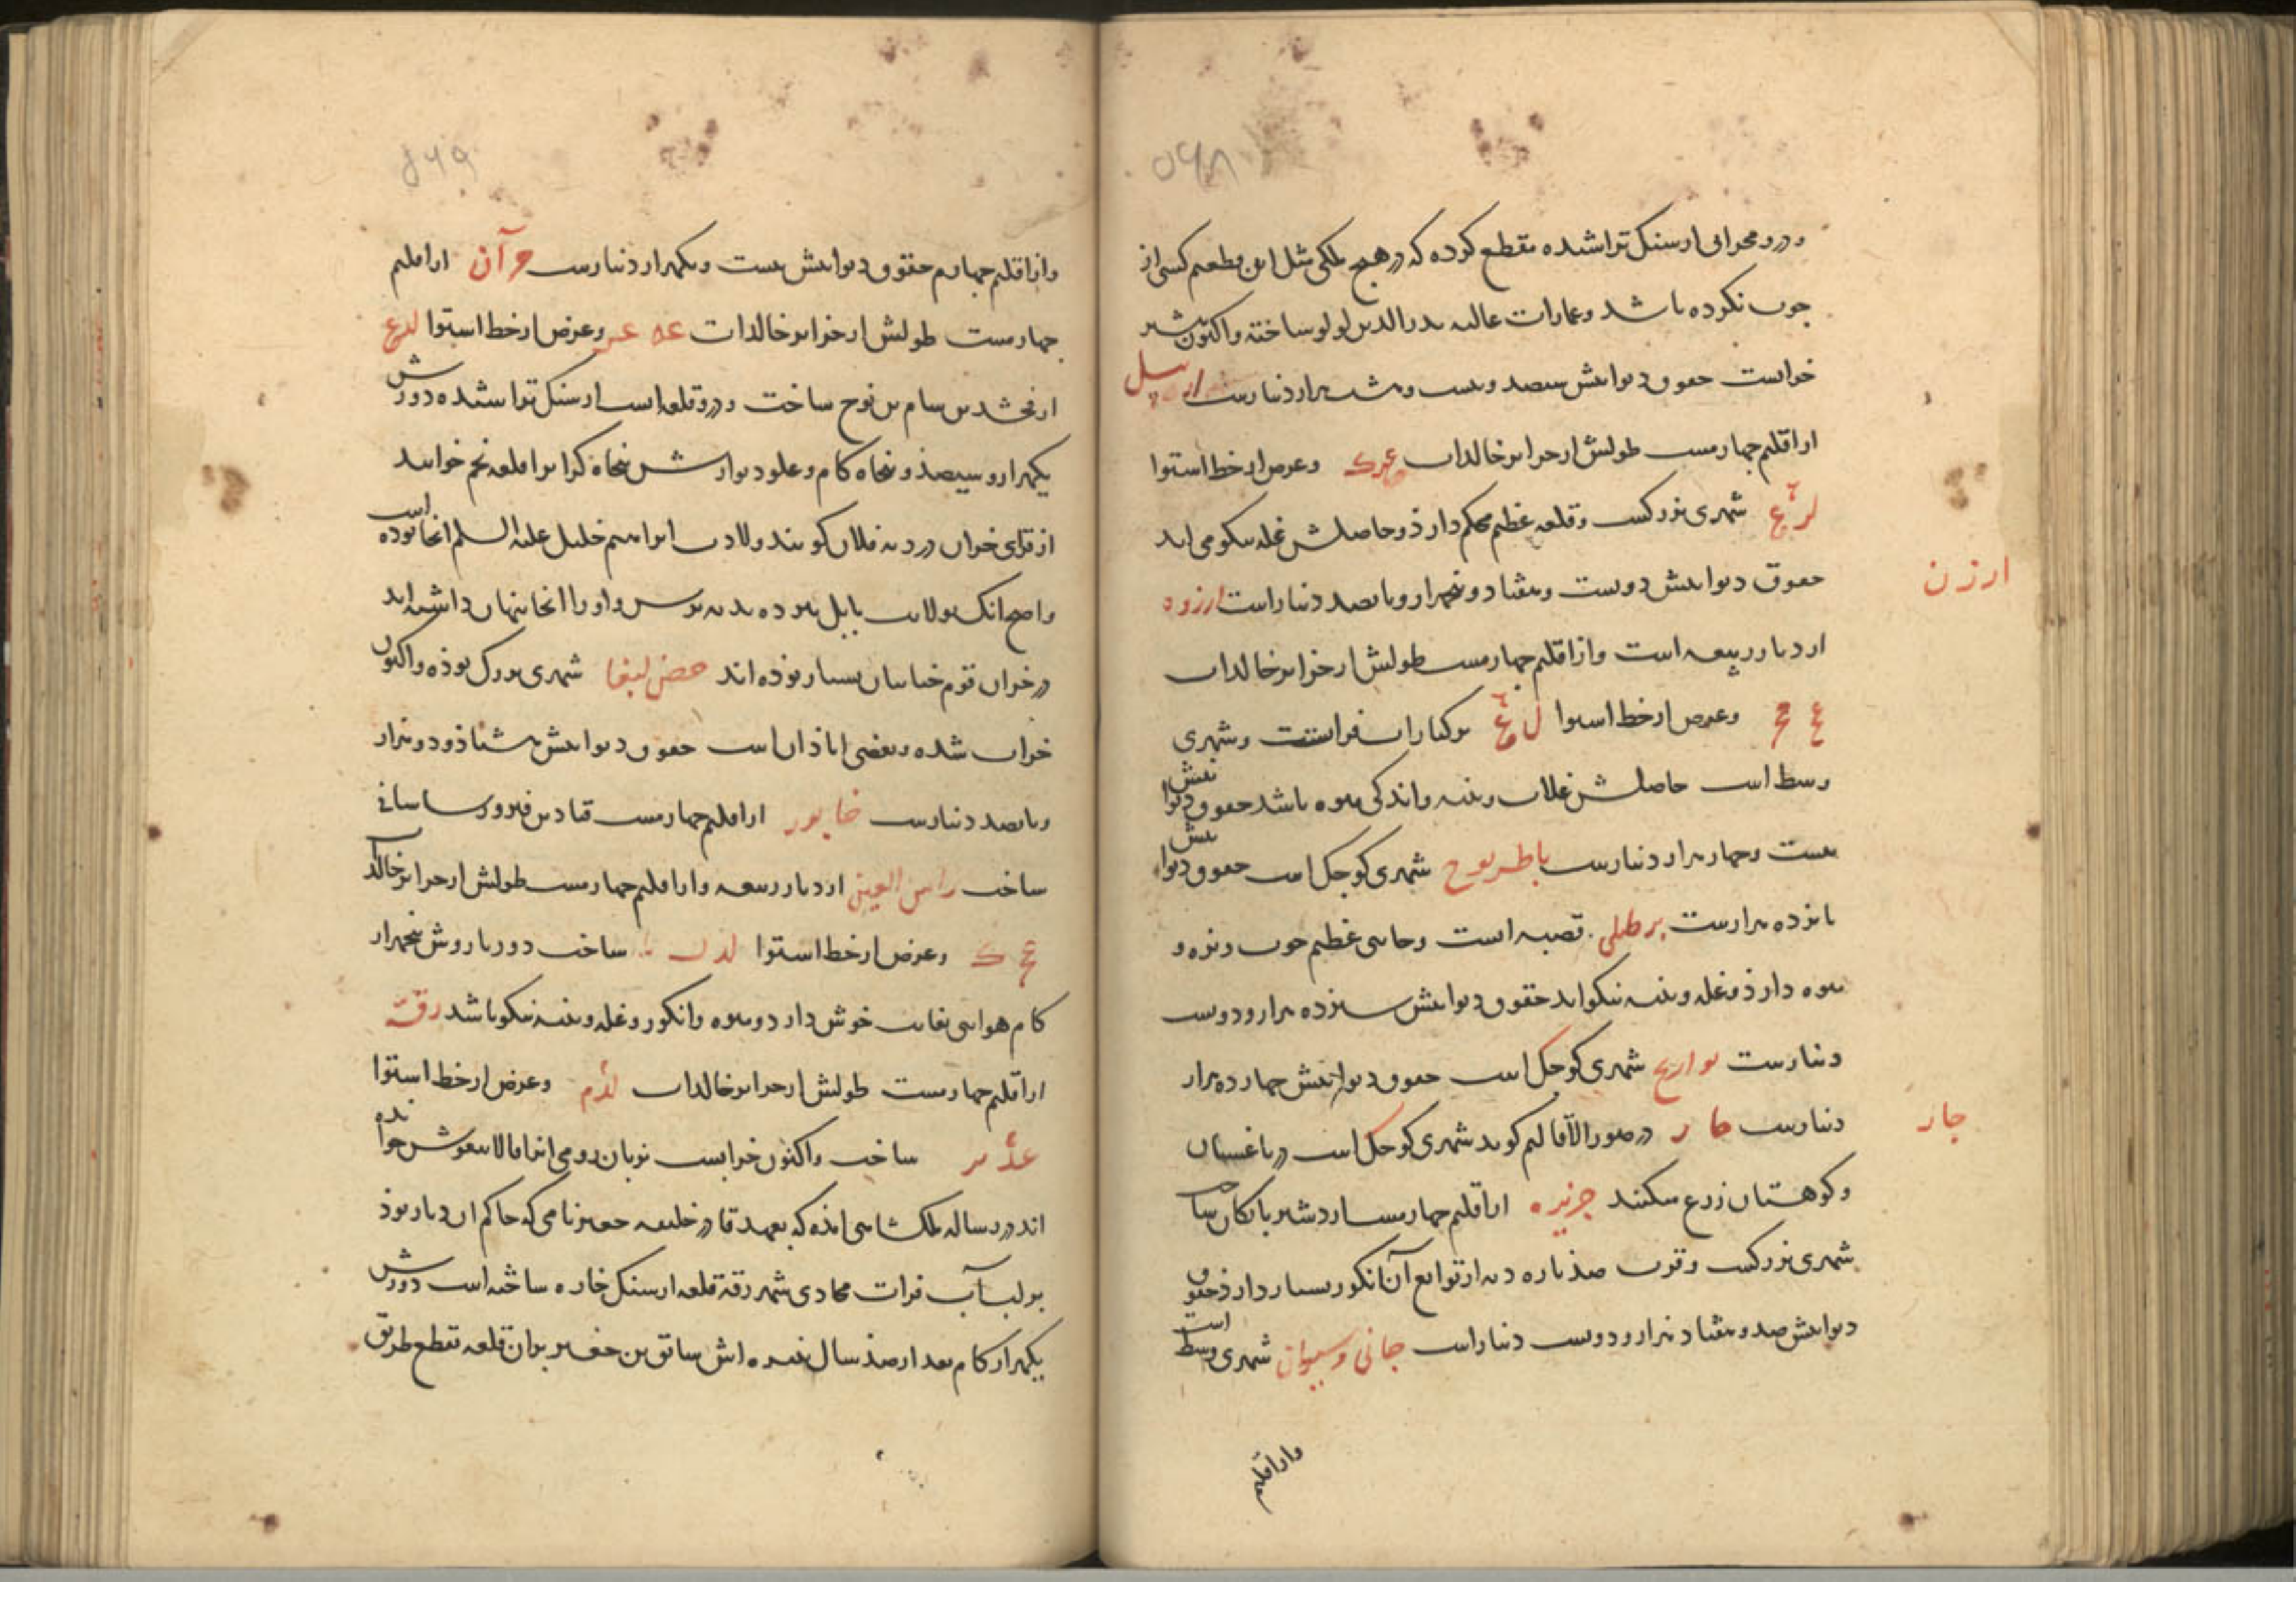 ۵۶۸
و درو محرابی از سنک تراشیده مقطع کرده که در هیچ ملکی مثل این مقطعی کسی از
چوب نکرده باشد و عمارات عالیه بدر الدین لولو ساخته و اکنون بیشتر
خرابست حقوق دیوانیش سیصد و بیست و هشت هزار دینارست اربیل
از اقلیم چهارمست طولش از جزایر خالدات عرک و عرض از خط استوا
شهری بزرکست و قلعه عظیم محکم دارد و حاصلش غله نیکو می‌آید
حقوق دیوانیش دویست و هفتاد و پنجهزار و پانصد دینار است ارزوه
ارزن
از دیار ربیعه است و از اقلیم چهارمست طولش از جزایر خالدات
و عرض از خط استوا بر کنار آب فراتست و شهری
وسط است حاصلش غلات و پنبه و اندکی میوه باشد حقوق دیوانیش
بیست و چهار هزار دینارست باطرنوح شهری کوچک است حقوق دیوانیش
پانزده هزارست برطلی قصبه است و جایی عظیم خوب و نزه و
میوه دارد و غله و پنبه نیکو آید حقوق دیوانیش سیزده هزار و دویست
دینارست بوازیج شهری کوچک است حقوق دیوانیش چهارده هزار
دینارست جار در صور الاقالیم کوید شهری کوچک است در باغستان
جار
و کوهستان زرع میکنند جزیره از اقلیم چهارمست اردشیر بابکان ساخت
شهری بزرکست و قرب صد پاره دیه از توابع آن انکور بسیار دارد حقوق
دیوانیش صد و هفتاد هزار و دویست دینار است جانی و سیوان شهری وسط است
و از اقلیم
۵۶۹
و از اقلیم چهارم حقوق دیوانیش بیست و یکهزار دینارست حرآن از اقلیم
چهارمست طولش از جزایر خالدات عه و عرض از خط استوا
ارفخشد بن سام بن نوح ساخت و درو قلعه است از سنک تراشیده دورش
یکهزار و سیصد و پنجاه کام و علو دیوارش پنجاه کز آنرا قلعه نجم خوانند
از قرای حران در دیه فلان کویند ولادت ابراهیم خلیل علیه السلم آنجا بوده است
و اصح آنک بولایت بابل بوده بدیه برس و او را آنجا پنهان داشته‌اند
در حران قوم صابیان بسیار بوده‌اند حصن کیفا شهری بزرک بوده و اکنون
خراب شده و بعضی آبادان است حقوق دیوانیش هشتاد و دو هزار
و پانصد دینارست خابور از اقلیم چهارمست قباد بن فیروز ساسانی
ساخت راس العین از دیار ربیعه و از اقلیم چهارمست طولش از جزایر خالدات
و عرض از خط استوا ساخت دور بارویش پنجهزار
کام هوایی بغایت خوش دارد و میوه و انکور و غله و پنبه نیکو باشد رقه
از اقلیم چهارمست طولش از جزایر خالدات و عرض از خط استوا
ساخت و اکنون خرابست بزبان رومی آنرا قالانیقوش خوانده
اند در رساله ملک شاهی آمده که بعهد قادر خلیفه جعبر نامی که حاکم آن دیار بود
بر لب آب فرات محاذی شهر رقه قلعه از سنک خاره ساخته است دورش
یکهزار کام بعد از صد سال نبیره‌اش سابق بن جعفر بر آن قلعه قطع طریق